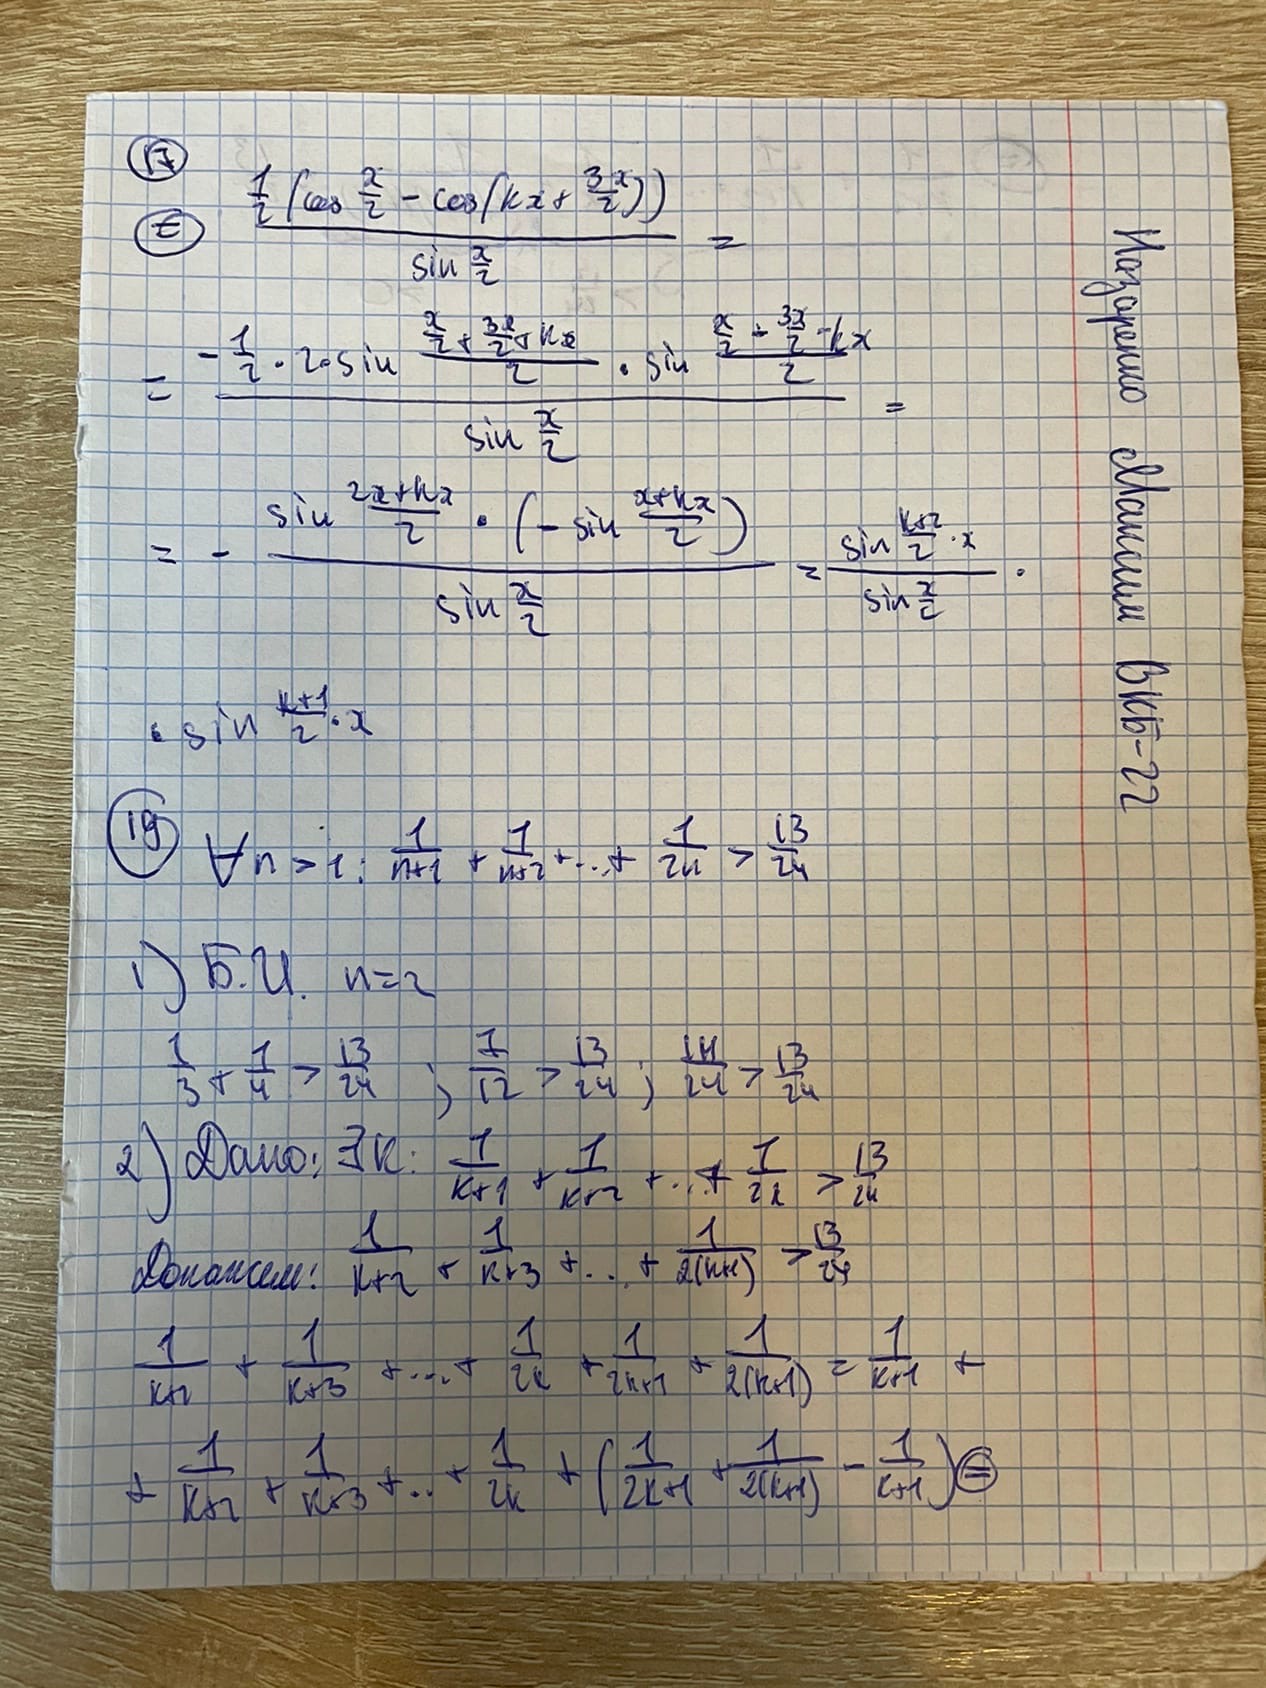 17
⊜ (1/2 (cos x/2 - cos(kx + 3x/2))) / (sin x/2) =
= (-1/2 · 2 · sin (x/2 + 3x/2 + kx)/2 · sin (x/2 - 3x/2 - kx)/2) / (sin x/2) =
= - (sin (2x+kx)/2 · (- sin (x+kx)/2)) / (sin x/2) = (sin (k+2)/2 · x) / (sin x/2) ·
· sin (k+1)/2 · x
19
∀n > 1: 1/(n+1) + 1/(n+2) + ... + 1/2n > 13/24
1) Б.И. n=2
1/3 + 1/4 > 13/24 ; 7/12 > 13/24 ; 14/24 > 13/24
2) Дано: ∃k: 1/(k+1) + 1/(k+2) + ... + 1/2k > 13/24
Докажем: 1/(k+2) + 1/(k+3) + ... + 1/(2(k+1)) > 13/24
1/(k+2) + 1/(k+3) + ... + 1/2k + 1/(2k+1) + 1/(2(k+1)) = 1/(k+1) +
+ 1/(k+2) + 1/(k+3) + .. + 1/2k + (1/(2k+1) + 1/(2(k+1)) - 1/(k+1)) ⊜
Назаренко Максим ВКБ-22